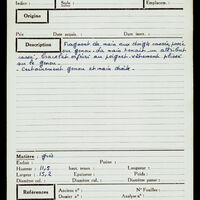 Indice : Socle : Emplacem. :
Origine
Prix Date acquis. : Date inscr. :
Description Fragment de main aux doigts cassés, posée
sur genou. La main tenait un attribut
cassé, bracelet au poignet. vêtement plissé
sur le genou.
- Certainement genou et main droite.
Matière : grès
Entier : Poins :
Hauteur : 11,5 haut. tenon : Longueur :
Largeur : 15,2 Epaisseur : Poids :
Diamètre : Diamètre col. : Diamètre panse :
Références Anciens n° : N° Fouilles :
Dossier n° : Analyse n° :